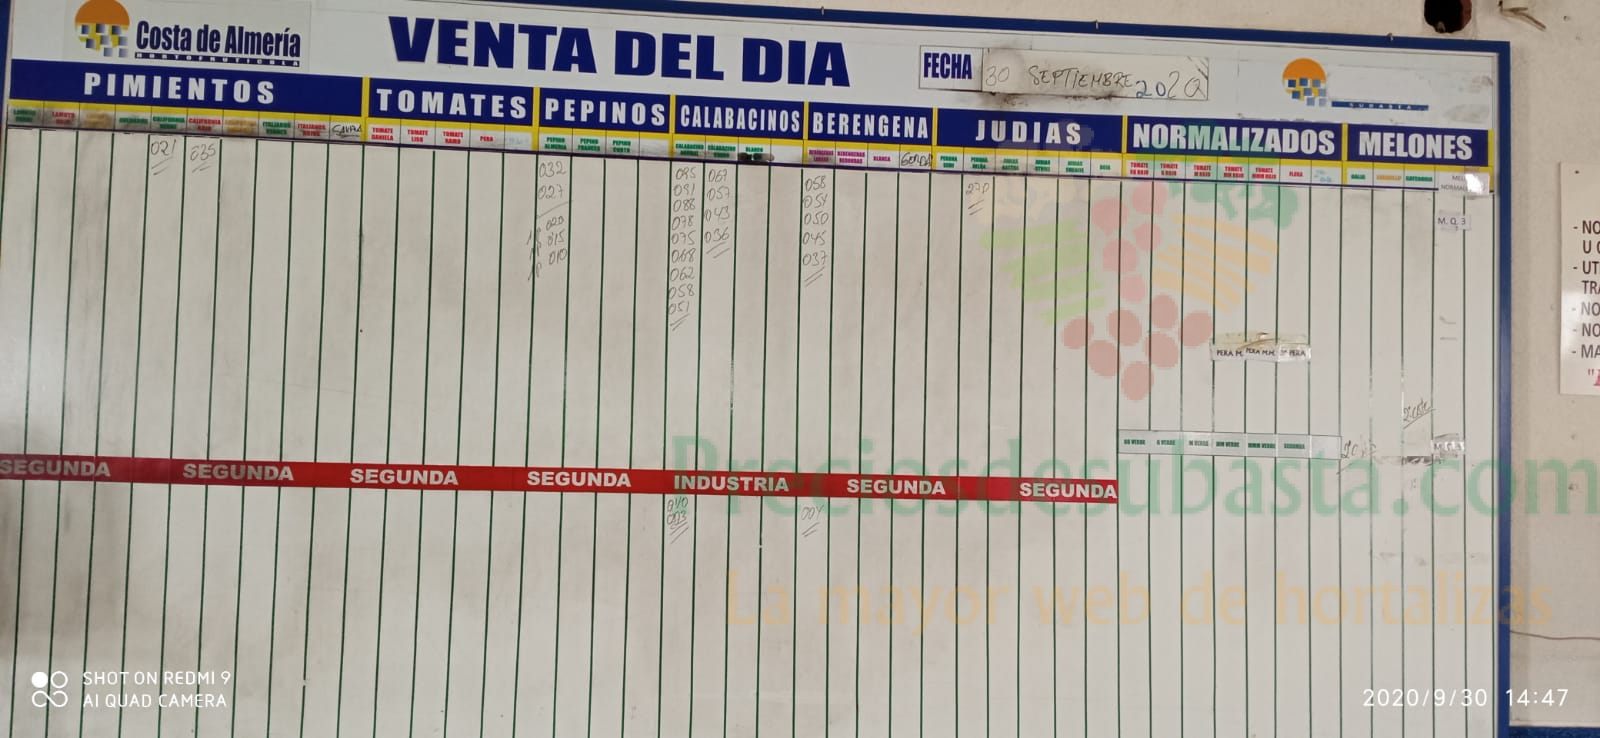 Costa de Almería
HORTOFRUTICOLA
VENTA DEL DIA
FECHA
30 SEPTIEMBRE 2020
SUBASTA
PIMIENTOS
TOMATES
PEPINOS
CALABACINOS
BERENGENA
JUDIAS
NORMALIZADOS
MELONES
LAMUYO ROJO
CALIFORNIA VERDE
CALIFORNIA ROJO
ITALIANOS VERDES
ITALIANOS ROJOS
TOMATE DANIELA
TOMATE LISO
TOMATE RAMO
PERA
PEPINO ALMERIA
PEPINO FRANCES
PEPINO CORTO
CALABACINO
CALABACINO GORDO
BLANCO
BLANCA
GORDA
PERONA
021
035
032
027
1p 020
1p 015
1p 010
095
091
088
078
075
068
062
058
051
067
057
043
036
058
054
050
045
037
270
M. Q. 3
PERA M. PERA M.M. PERA
GG VERDE
G VERDE
M VERDE
MM VERDE
MMM VERDE
SEGUNDA
SEGUNDA
SEGUNDA
SEGUNDA
SEGUNDA
INDUSTRIA
SEGUNDA
SEGUNDA
010
003
004
- NO
U
- UT
TRA
- NO
- NO
- MA
Preciosdesubasta.com
La mayor web de hortalizas
SHOT ON REDMI 9
AI QUAD CAMERA
2020/9/30 14:47